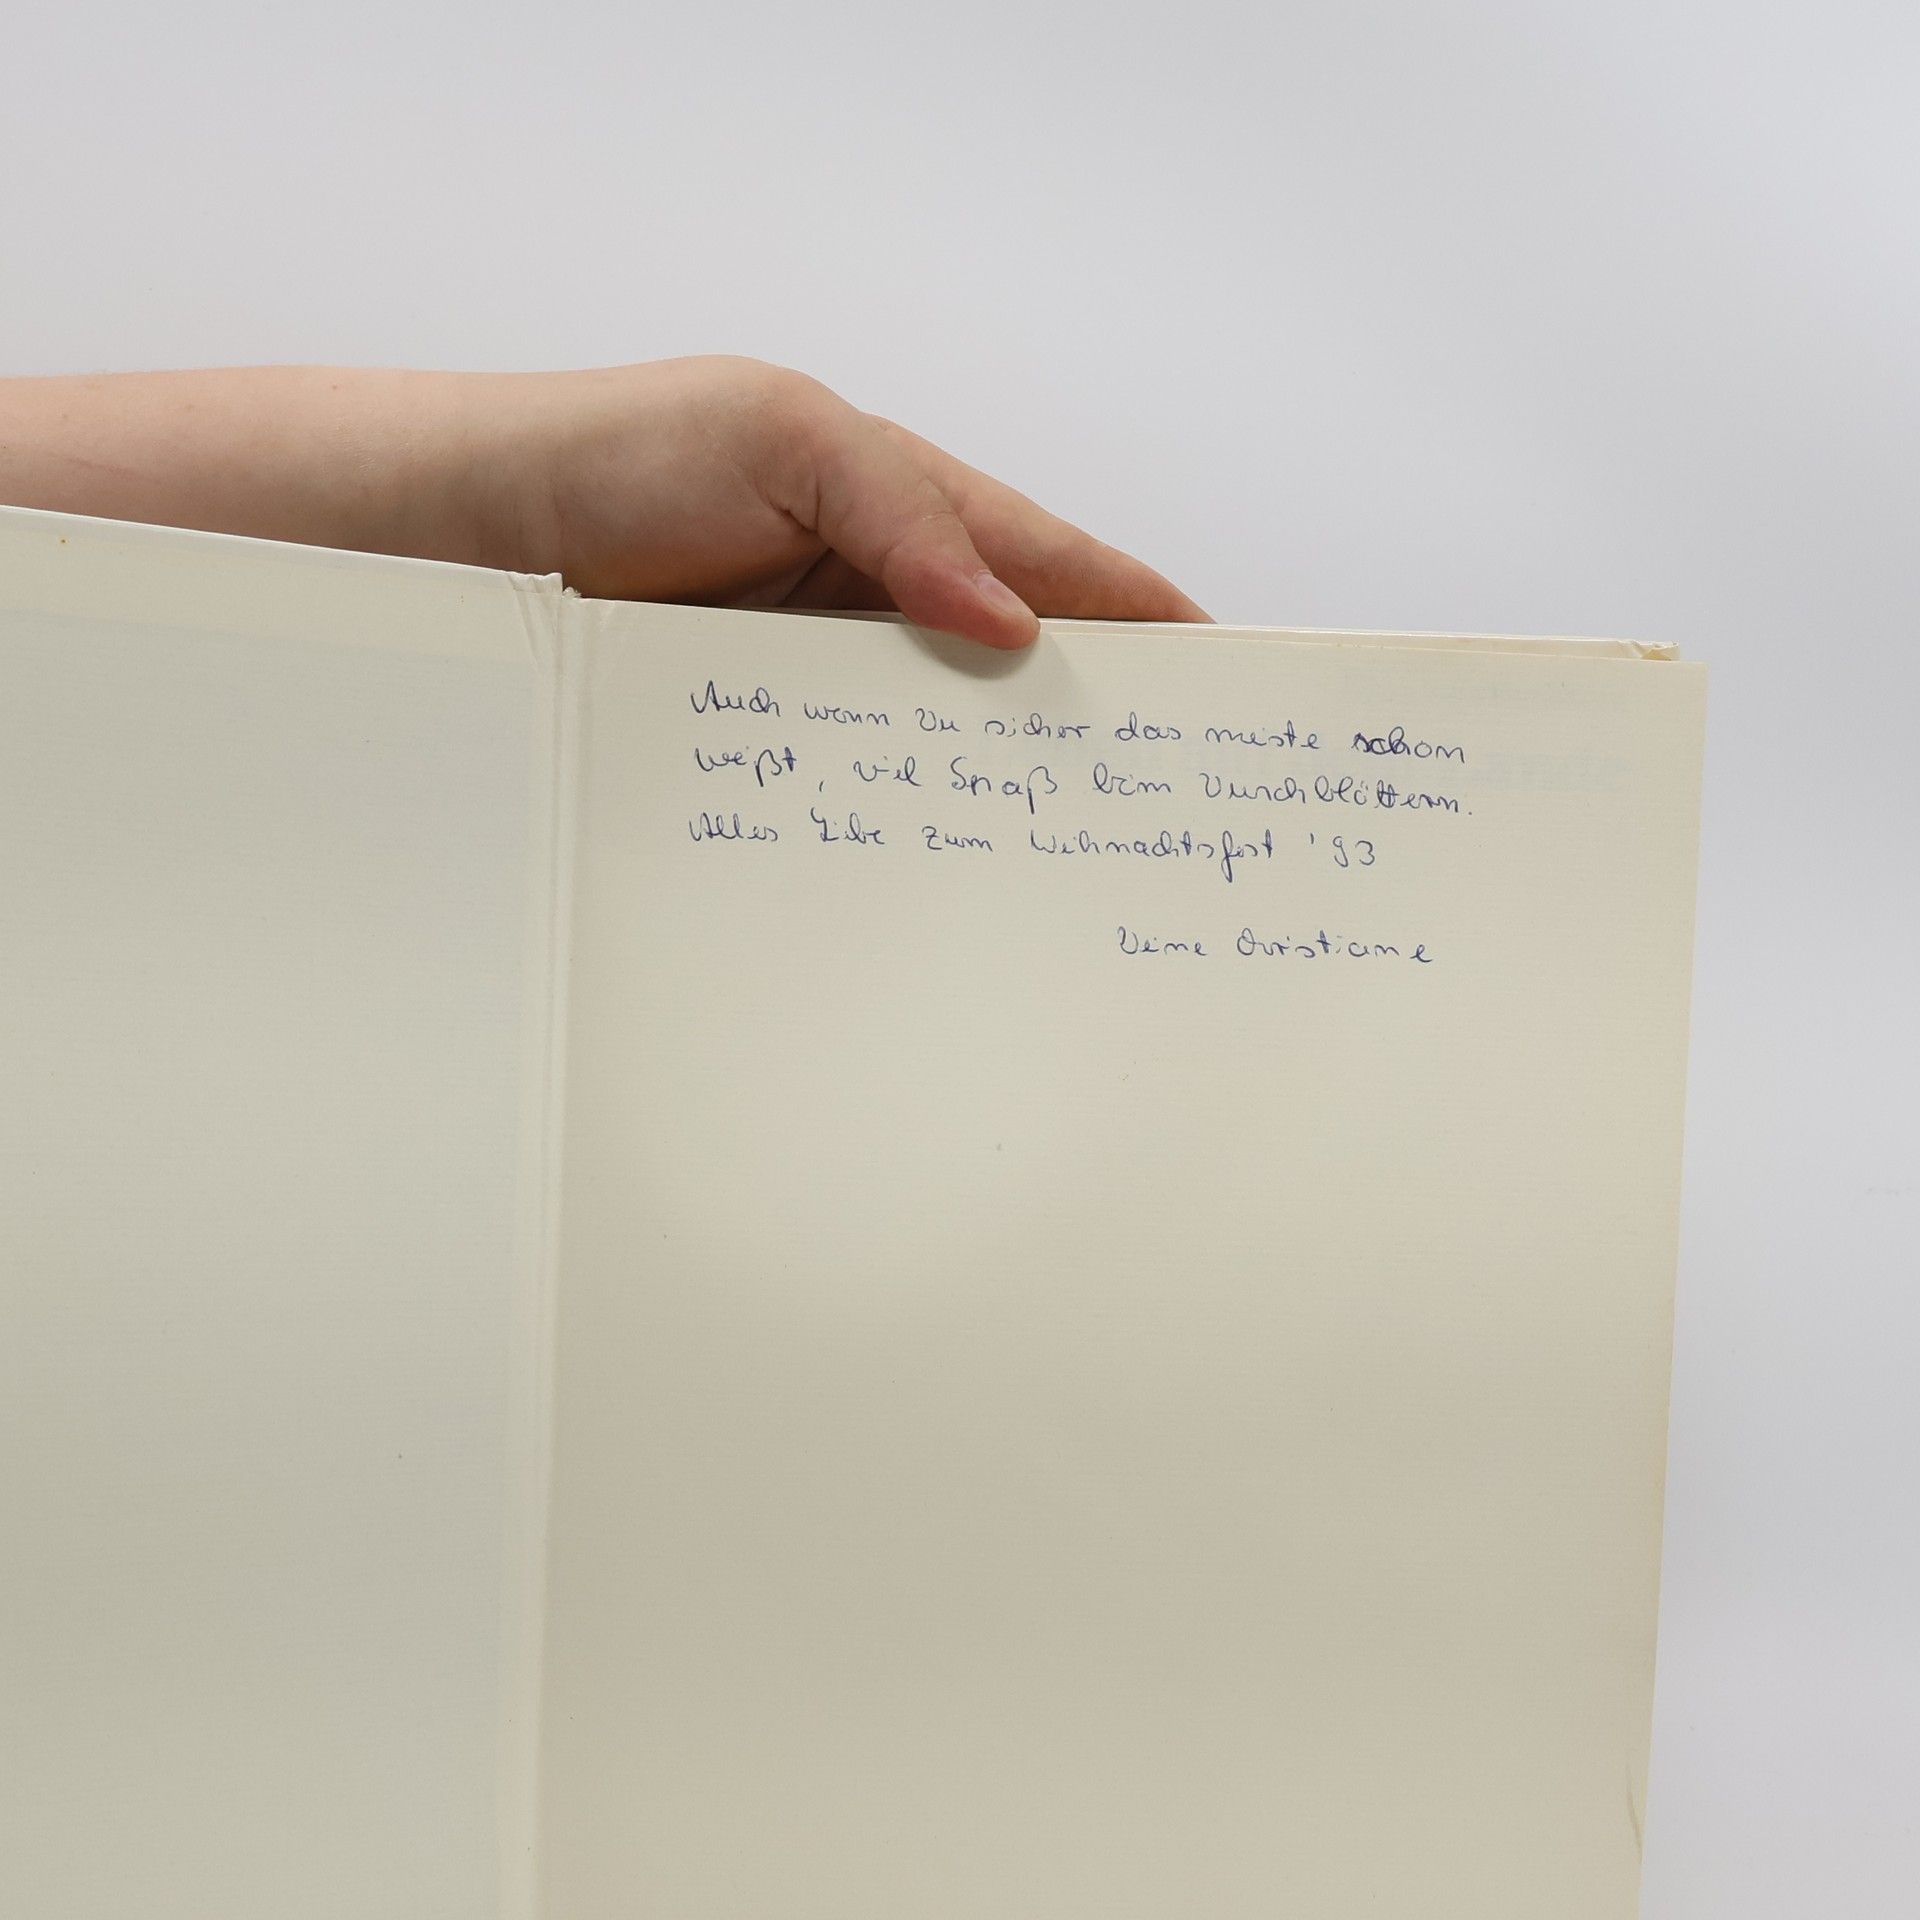 Auch wenn Du sicher das meiste schon
weißt, viel Spaß beim Durchblättern.
Alles Liebe zum Weihnachtsfest '93
Deine Christiane